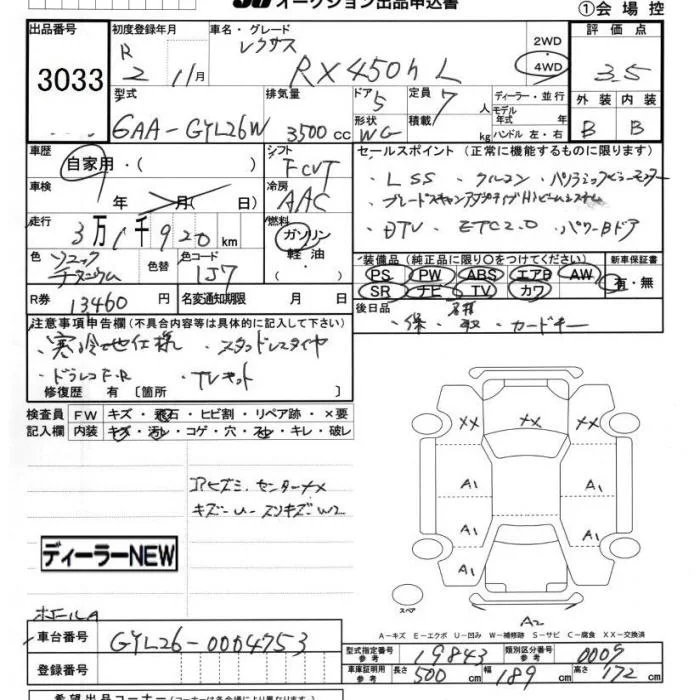 オークション出品申込書
①会場控
出品番号
3033
初度登録年月
R 2 11月
車名・グレード
レクサス
RX450hL
2WD
4WD
評価点
3.5
外装 内装
B B
型式
6AA-GYL26W
排気量
3500cc
ドア 5
形状 WG
定員 7人
積載 kg
ディーラー・並行
モデル年式 年式
ハンドル 左・右
車歴
自家用・( )
シフト
FCVT
車検
年 月( 日)
冷房
AAC
走行
3万1千920km
燃料
ガソリン
軽油
・( )
色
ソニックチタニウム
色替
色コード
1J7
R券
13460円
名変通知期限 月 日
セールスポイント(正常に機能するものに限ります)
・LSS ・クルコン ・パノラミックビューモニター
・ブレードスキャンアダプティブHiビームシステム
・DTV ・ETC2.0 ・パワーBドア
装備品(純正品に限り○をつけてください)
新車保証書
PS PW ABS エアB AW
SR ナビ TV カワ
有・無
後日品
・保 ・取 ・カードキー
注意事項申告欄(不具合内容等は具体的に記入して下さい)
・寒冷地仕様 ・スタッドレスタイヤ
・ドラレコF.R ・TVキット
修復歴 有〔箇所 〕
検査員記入欄
FW キズ・飛石・ヒビ割・リペア跡・×要
内装 キズ・汚レ・コゲ・穴・スレ・キレ・破レ
キズ-U-スリキズW2
ディーラーNEW
ホイールA
XX XX XX
A1 A1
A1 A1
A1 A1
スペア
A2
A-キズ E-エクボ U-凹み W-補修跡 S-サビ C-腐食 XX-交換済
車台番号
GYL26-0004753
登録番号
型式指定番号 参考
19843
類別区分番号 参考
0009
車庫証明用 参考
長さ 500cm 幅 189cm 高さ 172cm
希望出品コーナー